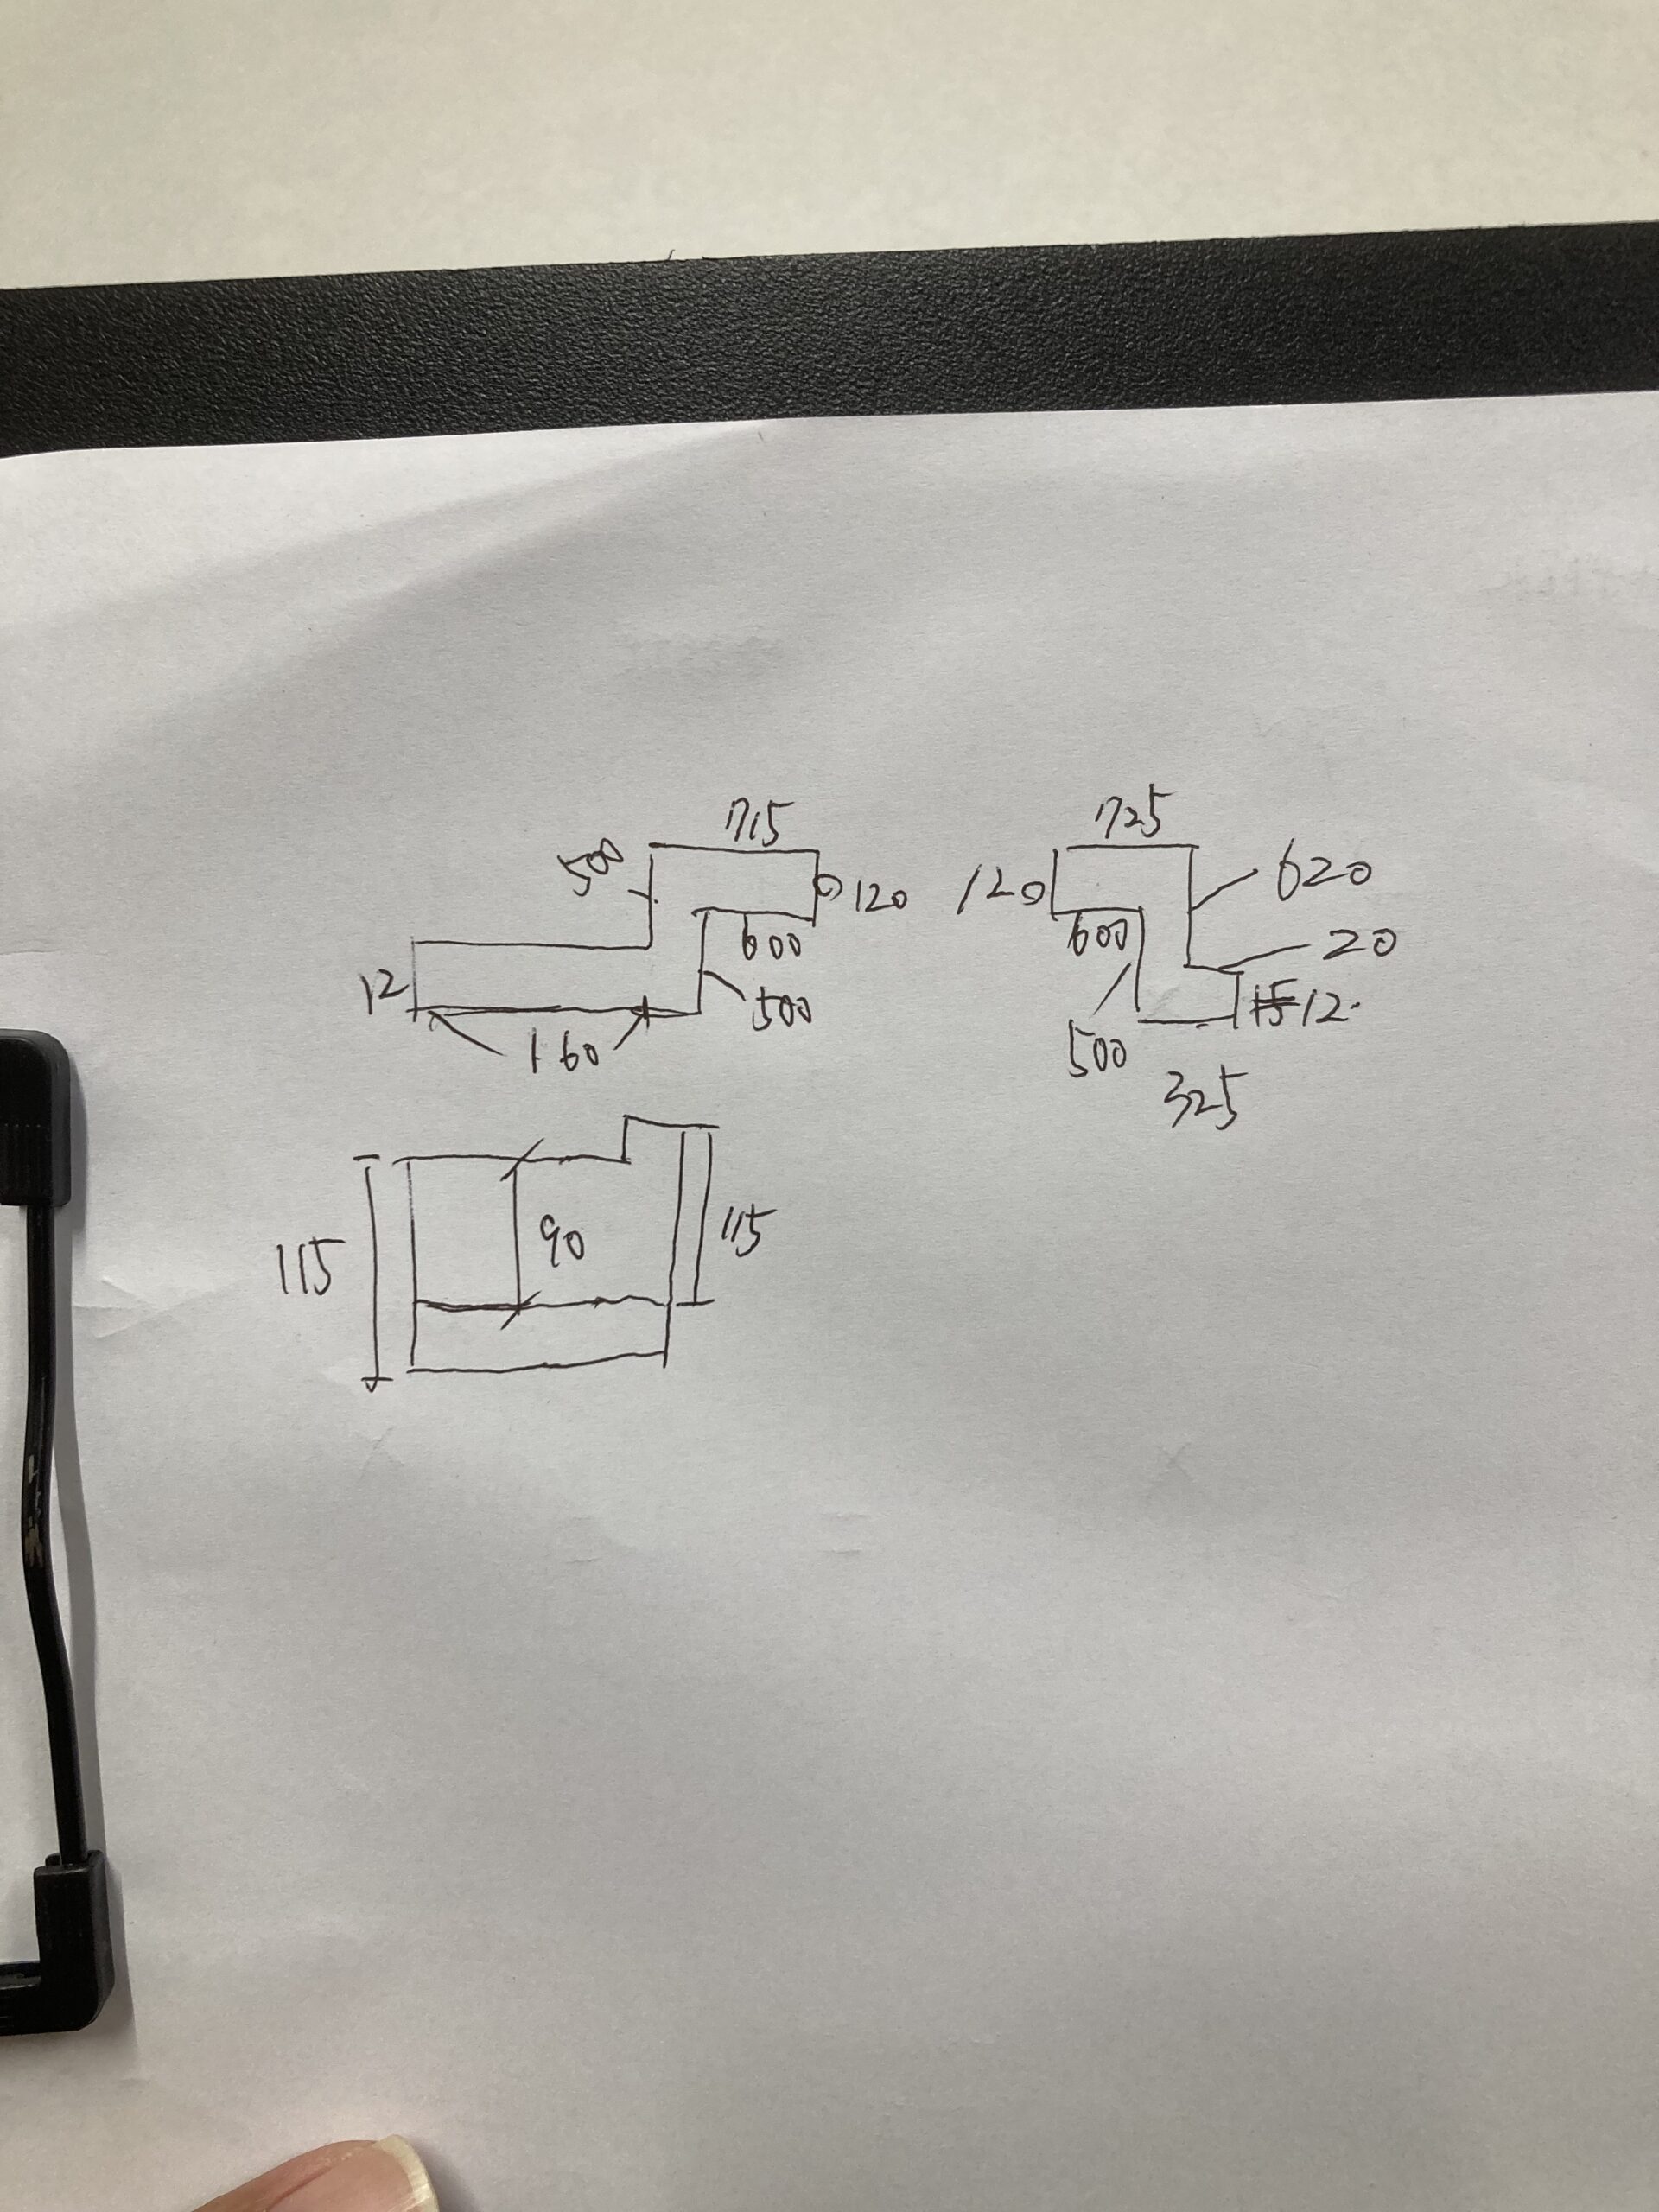 715
500
120
600
12
500
160
725
120
620
600
20
15 12.
500
325
115
90
115